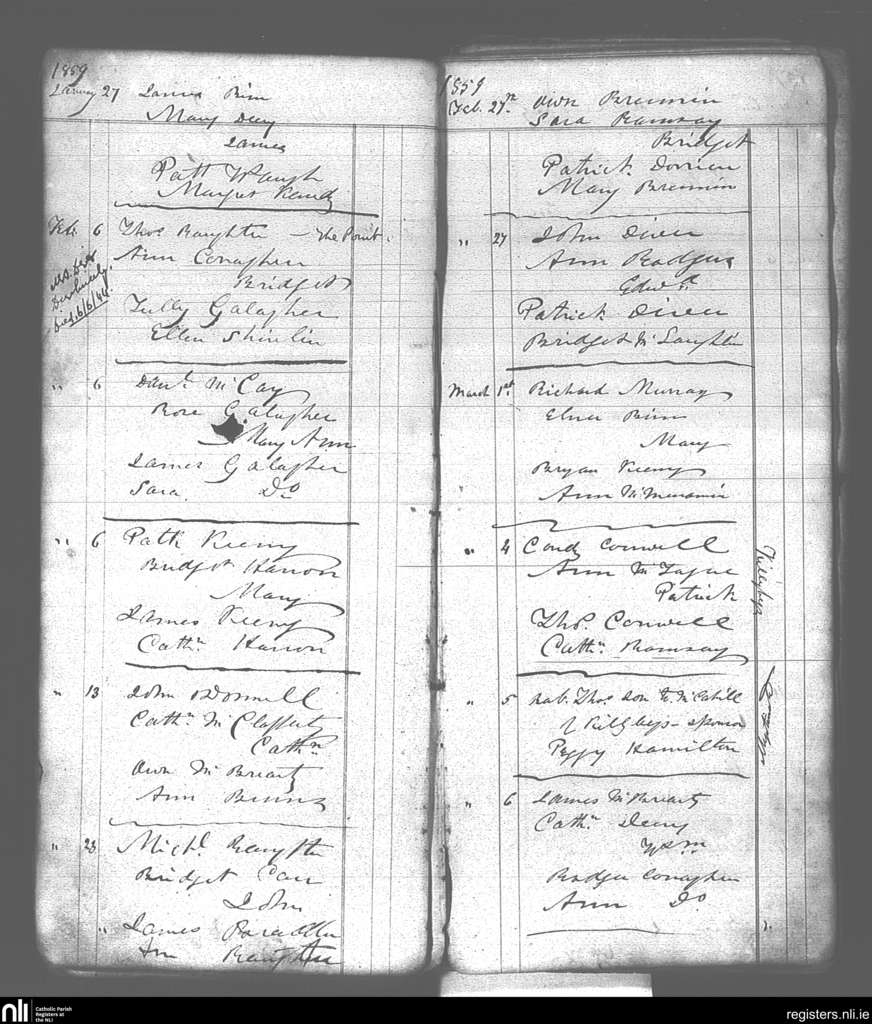 1859
January 27 James Binn
Mary Deey
James
Patt Waugh
Margret Kennedy
Feb. 6 Thos. Raughter — The Point.
Ann Conaghen
Bridget
Tully Galagher
Ellen Shinlin
Died 6/6/44
" 6 Danl. McCay
Rose Galagher
Mary Ann
James Galagher
Sara Do
" 6 Patk Kieeny
Bridget Harron
Mary
James Kieeny
Cathn. Harron
" 13 John ODonnell
Cathn. McClafferty
Cathn
Own McBriarty
Ann Binns
" 23 Michl. Raughter
Bridget Carr
John
" James
Ann Raughter
1859
Feb. 27th Own Brennin
Sara Ramsay
Bridget
Patrick Dorrien
Mary Brennin
" 27 John Diven
Ann Rodgers
Edwd.
Patrick Diven
Bridget McLaughlin
March 1st Richard Murray
Elner Binn
Mary
Bryan Kieeny
Ann McMenamin
" 4 Condy Conwell
Ann McTague
Patrick
Thos. Conwell
Cathn. Ramsay
Killybegs
" 5 bab. Thos. son to McCahill
of Killybegs – sponsor
Peggy Hamilton
" 6 James McBriarty
Cathn. Deeny
Wm
Rodger Conaghen
Ann Do
"
nli
Catholic Parish
Registers at
the NLI
registers.nli.ie